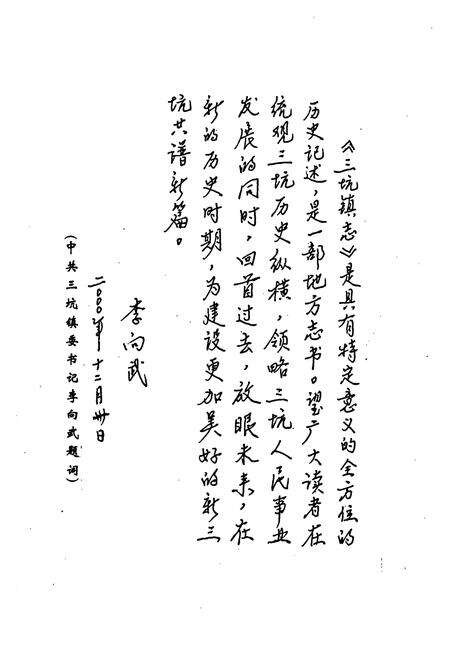 《三坑镇志》是具有特定意义的全方位的
历史记述，是一部地方志书。望广大读者在
统观三坑历史纵横，领略三坑人民事业
发展的同时，回首过去，放眼未来，在
新的历史时期，为建设更加美好的新三
坑共谱新篇。
李向武
二〇〇〇年十二月卅日
（中共三坑镇委书记李向武题词）